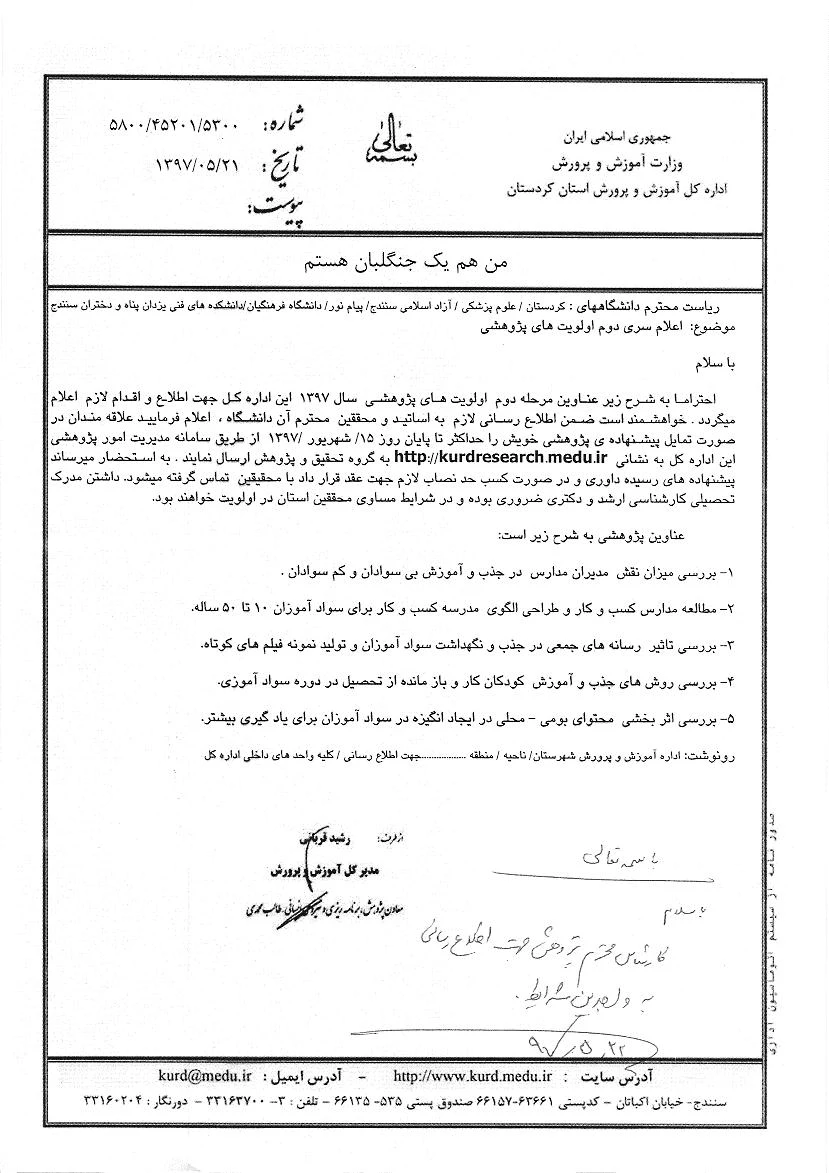 جمهوری اسلامی ایران
وزارت آموزش و پرورش
اداره کل آموزش و پرورش استان کردستان
بسمه تعالی
شماره: ۵۸۰۰/۴۵۲۰۱/۵۳۰۰
تاریخ: ۱۳۹۷/۰۵/۲۱
پیوست:
من هم یک جنگلبان هستم
ریاست محترم دانشگاههای : کردستان / علوم پزشکی / آزاد اسلامی سنندج/ پیام نور/ دانشگاه فرهنگیان/دانشکده های فنی یزدان پناه و دختران سنندج
موضوع: اعلام سری دوم اولویت های پژوهشی
با سلام
احتراما به شرح زیر عناوین مرحله دوم اولویت های پژوهشی سال ۱۳۹۷ این اداره کل جهت اطلاع و اقدام لازم اعلام
میگردد . خواهشمند است ضمن اطلاع رسانی لازم به اساتید و محققین محترم آن دانشگاه ، اعلام فرمایید علاقه مندان در
صورت تمایل پیشنهاده ی پژوهشی خویش را حداکثر تا پایان روز ۱۵/ شهریور /۱۳۹۷ از طریق سامانه مدیریت امور پژوهشی
این اداره کل به نشانی http://kurdresearch.medu.ir به گروه تحقیق و پژوهش ارسال نمایند . به استحضار میرساند
پیشنهاده های رسیده داوری و در صورت کسب حد نصاب لازم جهت عقد قرار داد با محقیقین تماس گرفته میشود. داشتن مدرک
تحصیلی کارشناسی ارشد و دکتری ضروری بوده و در شرایط مساوی محققین استان در اولویت خواهند بود.
عناوین پژوهشی به شرح زیر است:
۱- بررسی میزان نقش مدیران مدارس در جذب و آموزش بی سوادان و کم سوادان .
۲- مطالعه مدارس کسب و کار و طراحی الگوی مدرسه کسب و کار برای سواد آموزان ۱۰ تا ۵۰ ساله.
۳- بررسی تاثیر رسانه های جمعی در جذب و نگهداشت سواد آموزان و تولید نمونه فیلم های کوتاه.
۴- بررسی روش های جذب و آموزش کودکان کار و باز مانده از تحصیل در دوره سواد آموزی.
۵- بررسی اثر بخشی محتوای بومی - محلی در ایجاد انگیزه در سواد آموزان برای یاد گیری بیشتر.
رونوشت: اداره آموزش و پرورش شهرستان/ ناحیه / منطقه ..................جهت اطلاع رسانی / کلیه واحد های داخلی اداره کل
از طرف: رشید قربانی
مدیر کل آموزش و پرورش
معاون پژوهش، برنامه ریزی و نیروی انسانی. طالب محمدی
باسمه تعالی
با سلام
کارشناس محترم پژوهش جهت اطلاع رسانی
به واجدین شرایط .
۹۷/۵/۲۲
صدور نامه از سیستم اتوماسیون اداری
آدرس سایت : http://www.kurd.medu.ir - آدرس ایمیل : kurd@medu.ir
سنندج- خیابان اکباتان - کدپستی ۶۳۶۶۱-۶۶۱۵۷ صندوق پستی ۵۳۵- ۶۶۱۳۵ - تلفن : ۳- ۳۳۱۶۳۷۰۰ - دورنگار : ۳۳۱۶۰۲۰۴